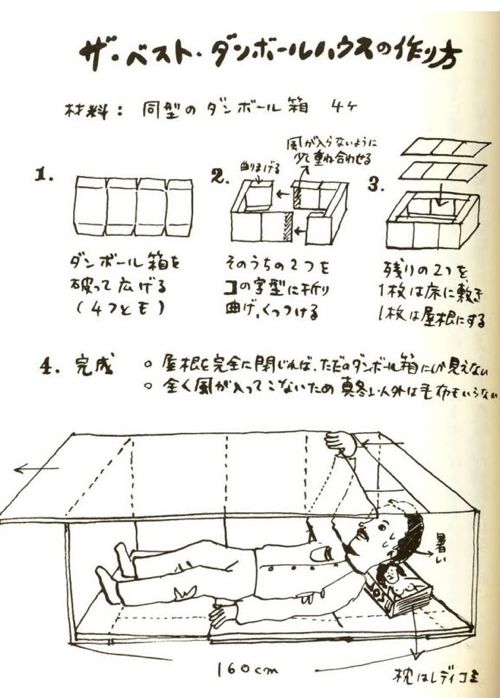 ザ・ベスト・ダンボールハウスの作り方
材料: 同型のダンボール箱 4ヶ
1.
ダンボール箱を
破って広げる
(4つとも)
2.
曲りまげる
風が入らないように
少し重ね合わせる
そのうちの2つを
コの字型に折り
曲げ、くっつける
3.
残りの2つを、
1枚は床に敷き
1枚は屋根にする
4. 完成
○ 屋根を完全に閉じれば、ただのダンボール箱にしか見えない
○ 全く風が入ってこないため真冬以外は毛布もいらない
暑い
160cm
枕はレディコミ